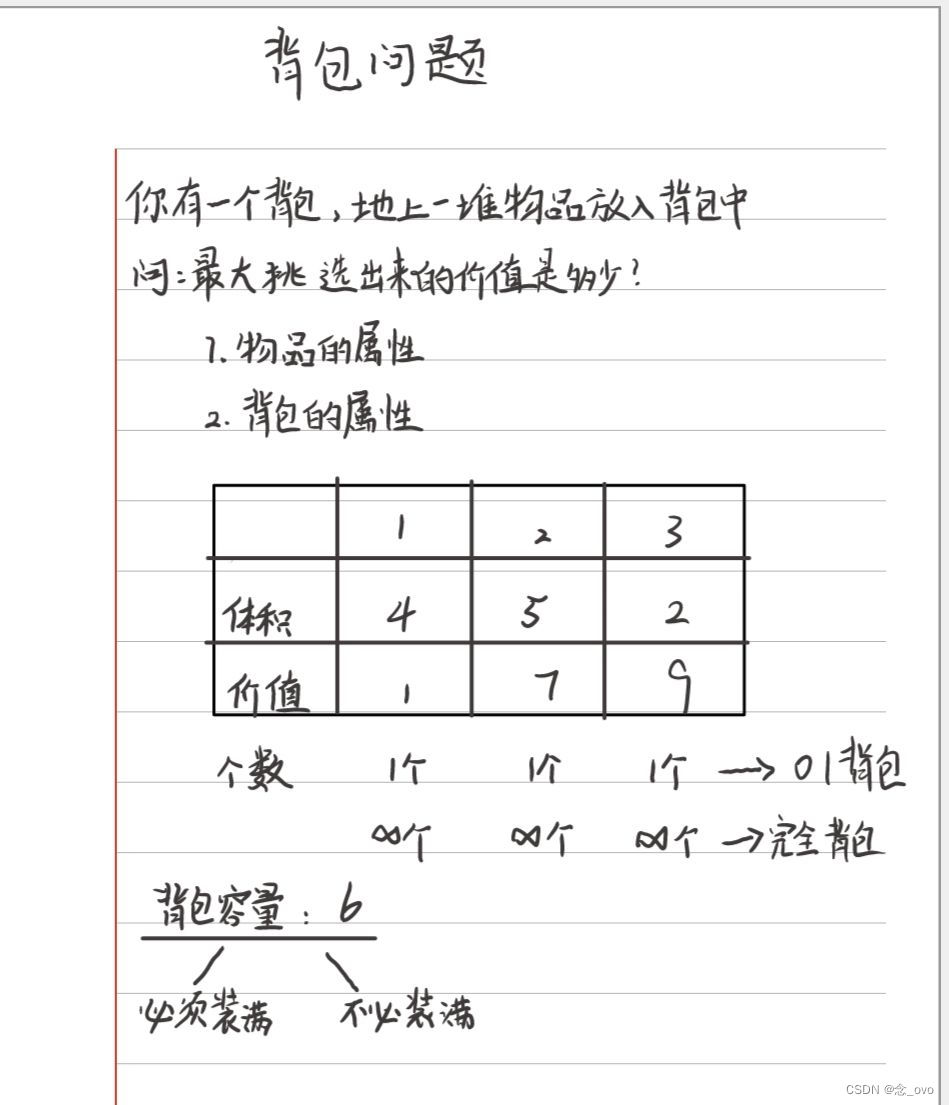 背包问题
你有一个背包,地上一堆物品放入背包中
问:最大挑选出来的价值是多少?
1.物品的属性
2.背包的属性
1 2 3
体积 4 5 2
价值 1 7 9
个数 1个 1个 1个 → 01背包
∞个 ∞个 ∞个 → 完全背包
背包容量:6
必须装满 不必装满
CSDN @念_ovo